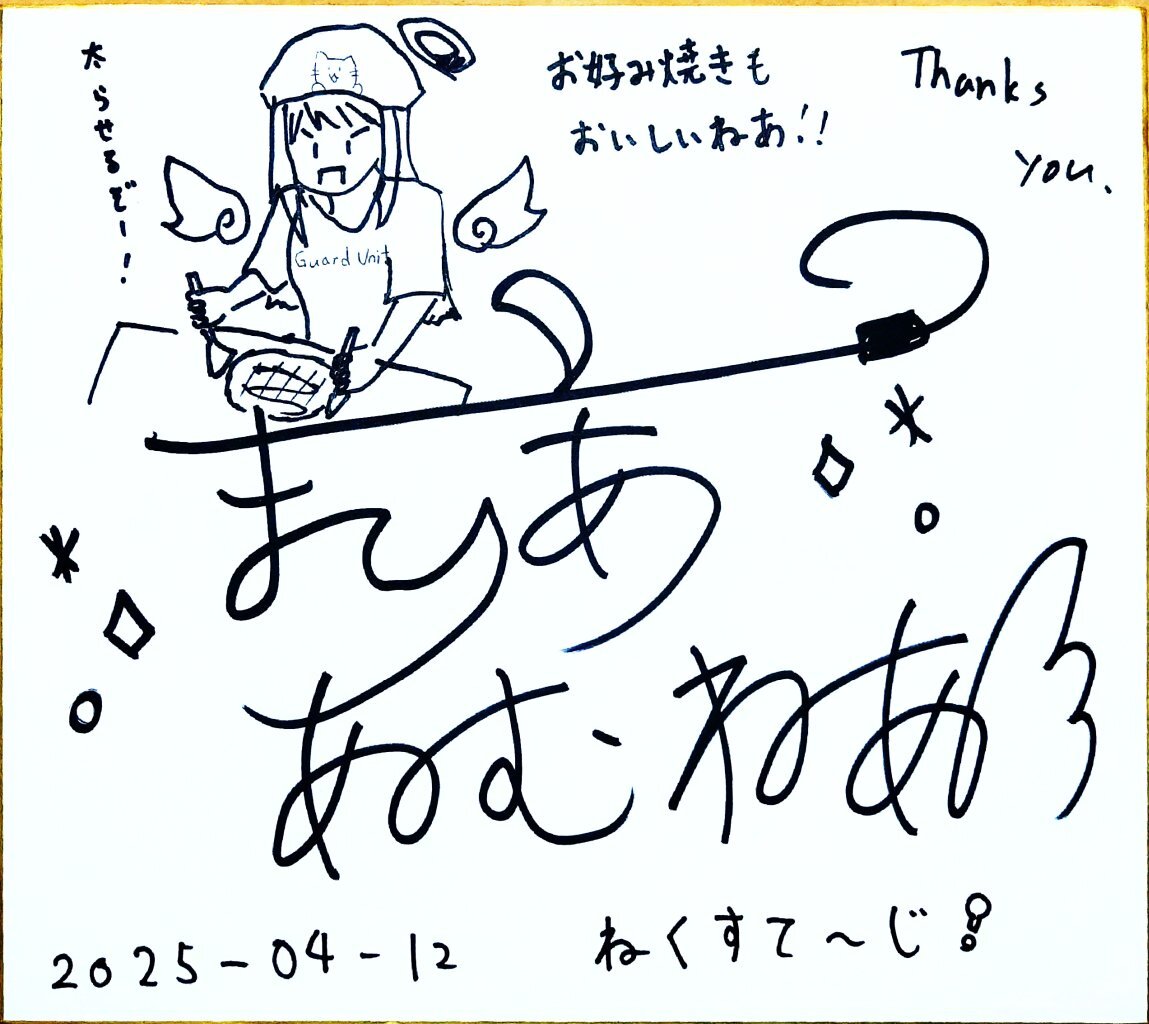 太らせるぞー!
お好み焼きも
おいしいねあ!!
Thanks
you.
Guard Unit
まりあ
あめむねあ
2025-04-12
ねくすて〜じ!